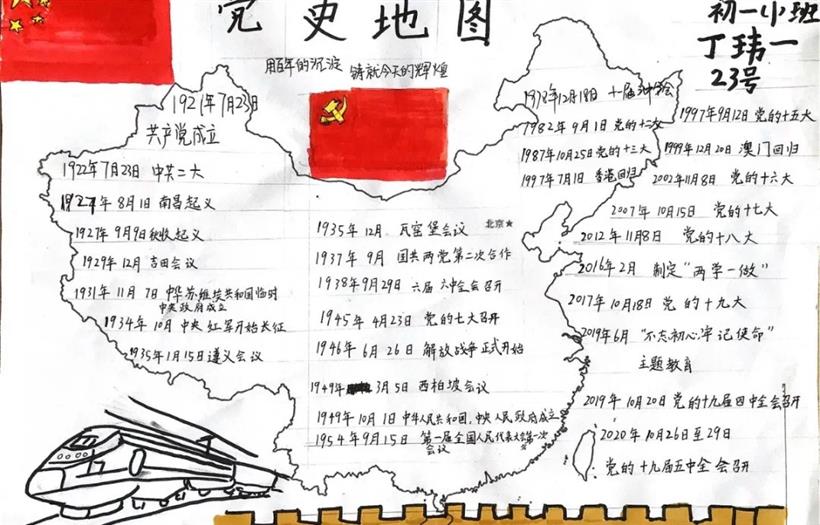 党史地图
初一小班
丁玮一
23号
用百年的沉淀 铸就今天的辉煌
1921年7月23日
共产党成立
1922年7月23日 中共二大
1927年8月1日 南昌起义
1927年9月9日 秋收起义
1929年12月 古田会议
1931年11月7日 中华苏维埃共和国临时
中央政府成立
1934年10月 中央红军开始长征
1935年1月15日 遵义会议
1935年12月 瓦窑堡会议
北京★
1937年9月 国共两党第二次合作
1938年9月29日 六届六中全会召开
1945年4月23日 党的七大召开
1946年6月26日 解放战争正式开始
1949年3月5日 西柏坡会议
1949年10月1日 中华人民共和国,中央人民政府成立
1954年9月15日 第一届全国人民代表大会第一次
会议
1978年12月18日 十一届三中全会
1982年9月1日 党的十二大
1987年10月25日 党的十三大
1997年7月1日 香港回归
1997年9月12日 党的十五大
1999年12月20日 澳门回归
2002年11月8日 党的十六大
2007年10月15日 党的十七大
2012年11月8日 党的十八大
2016年2月 制定“两学一做”
2017年10月18日 党的十九大
2019年6月 “不忘初心牢记使命”
主题教育
2019年10月20日 党的十九届四中全会召开
2020年10月26日至29日
党的十九届五中全会召开